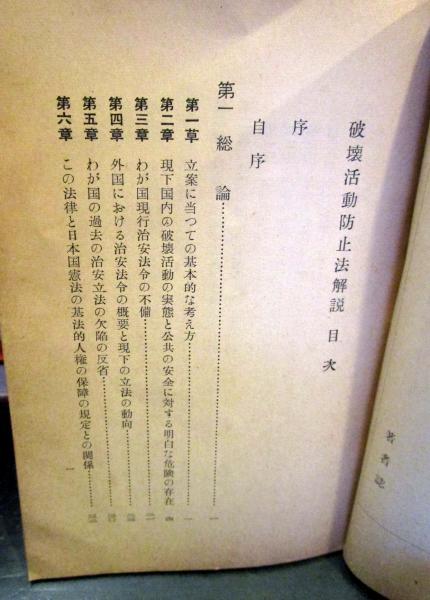 破壊活動防止法解説 目次
序
自序
第一 総論……………………一
第一草 立案に当つての基本的な考え方……………一
第二章 現下国内の破壊活動の実態と公共の安全に対する明白な危険の存在…
第三章 わが国現行治安法令の不備……………
第四章 外国における治安法令の概要と現下の立法の動向……………
第五章 わが国の過去の治安立法の欠陥の反省……………
第六章 この法律と日本国憲法の基法的人権の保障の規定との関係……
一
著者誌